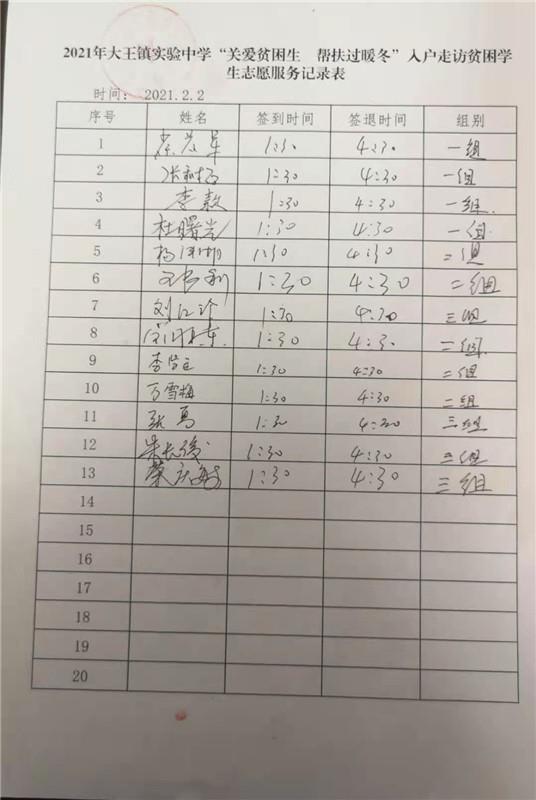 2021年大王镇实验中学“关爱贫困生 帮扶过暖冬”入户走访贫困学
生志愿服务记录表
时间： 2021.2.2
序号 姓名 签到时间 签退时间 组别
1 1:30 4:30 一组
2 1:30 4:30 一组
3 李毅 1:30 4:30 一组
4 杜曙光 1:30 4:30 一组
5 1:30 4:30 二组
6 1:30 4:30 二组
7 刘江 1:30 4:30 三组
8 1:30 4:30
9 李 1:30 4:30 二组
10 雪梅 1:30 4:30 二组
11 张 1:30 4:30 三组
12 朱长 1:30 4:30 三组
13 荣庆 1:30 4:30 三组
14
15
16
17
18
19
20